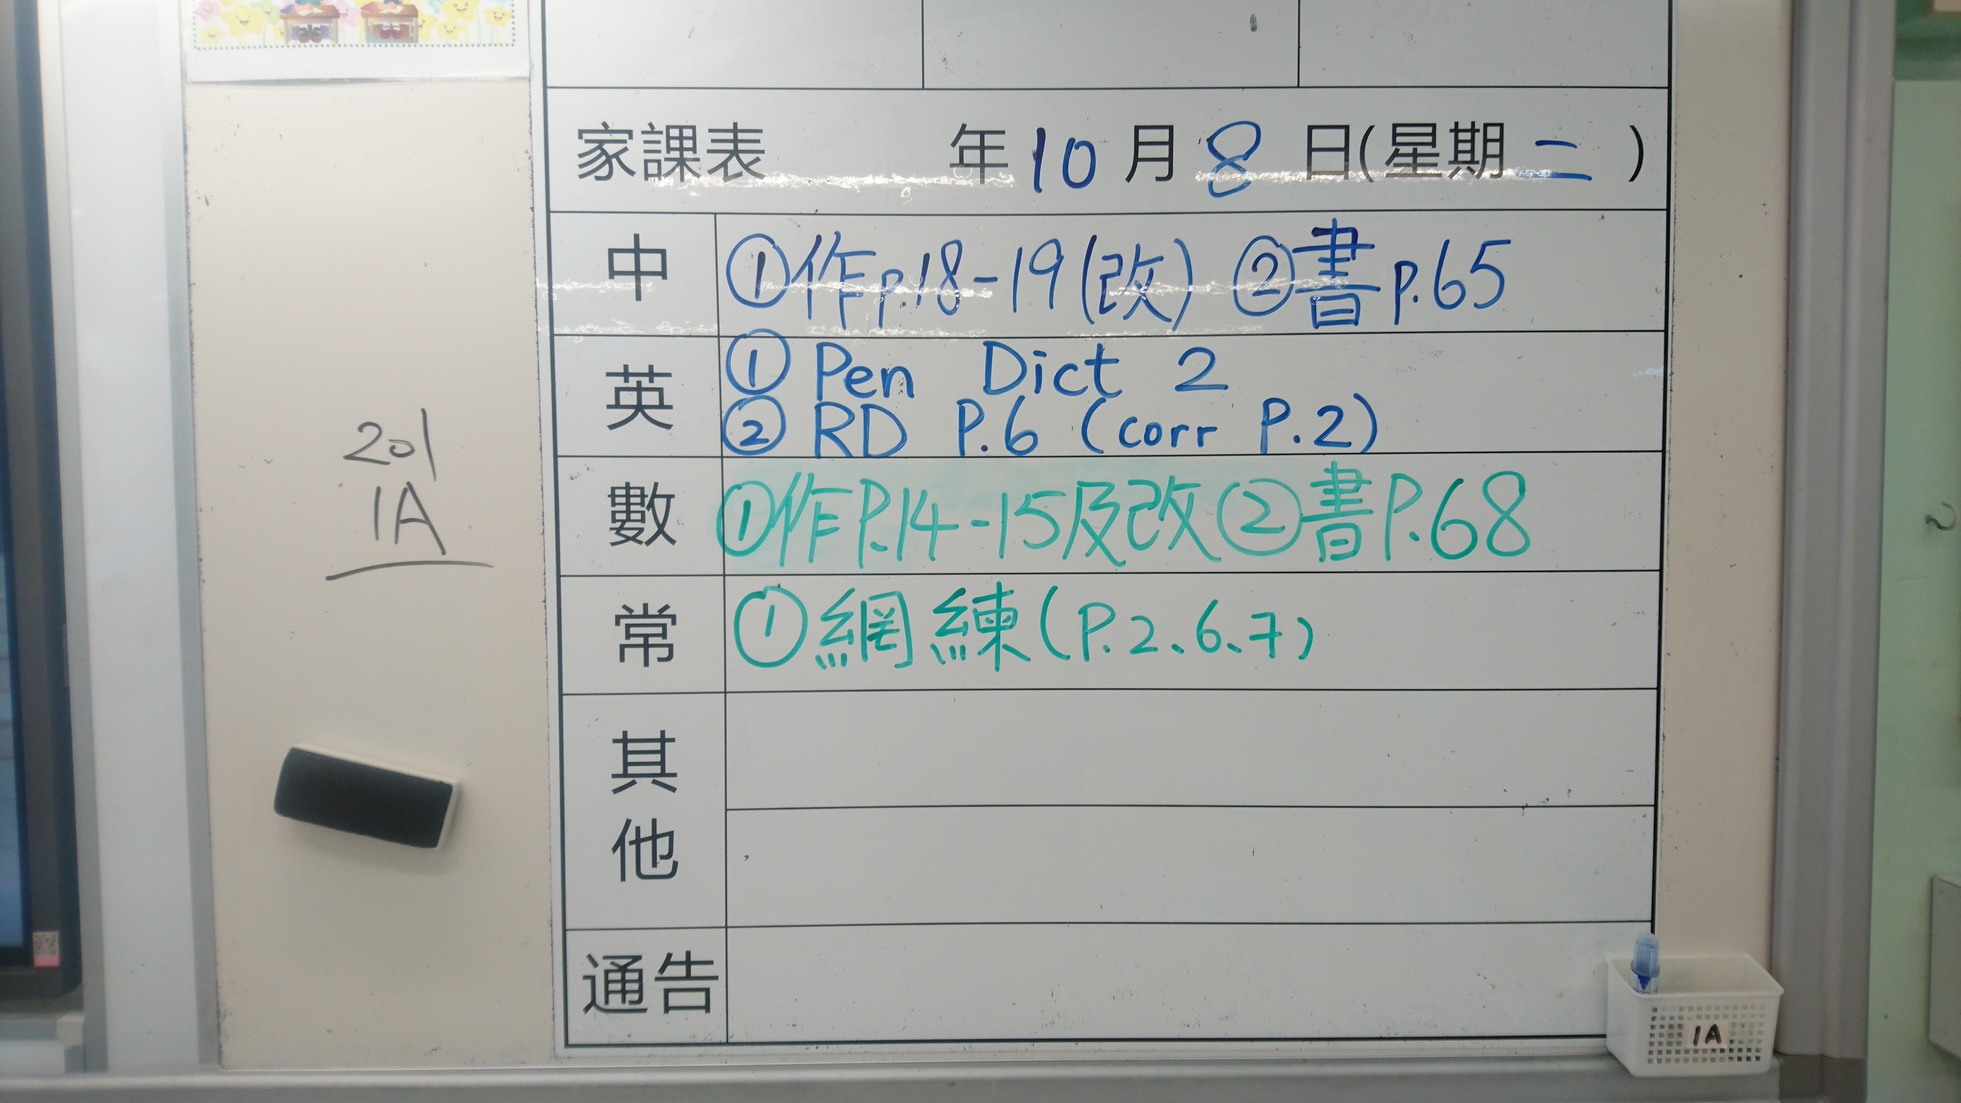 家課表 年10月8日(星期二)
中 ①作p.18-19(改) ②書p.65
英 ① Pen Dict 2
② RD P.6 (corr P.2)
數 ①作P.14-15及改②書P.68
常 ①網練(P.2、6、7)
其他
通告
201
1A
1A